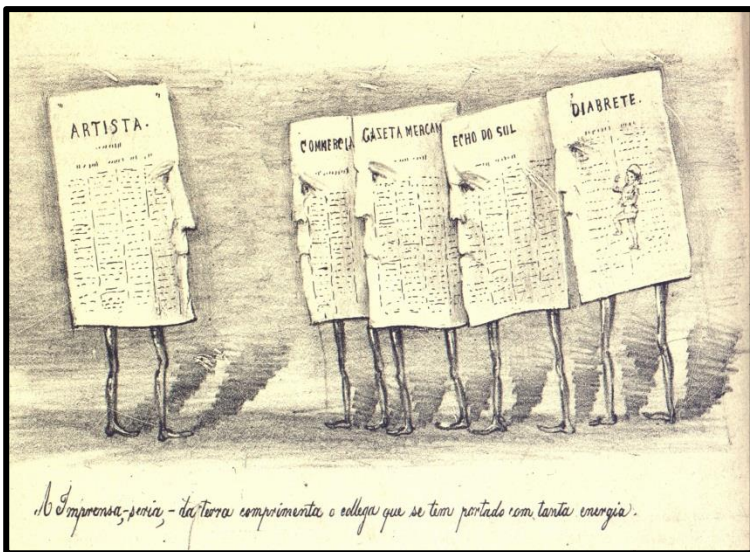 ARTISTA.
COMMERCIA
GAZETA MERCAN
ECHO DO SUL
DIABRETE.
A Imprensa,-seria,-da terra comprimenta o collega que se tem portado com tanta energia.